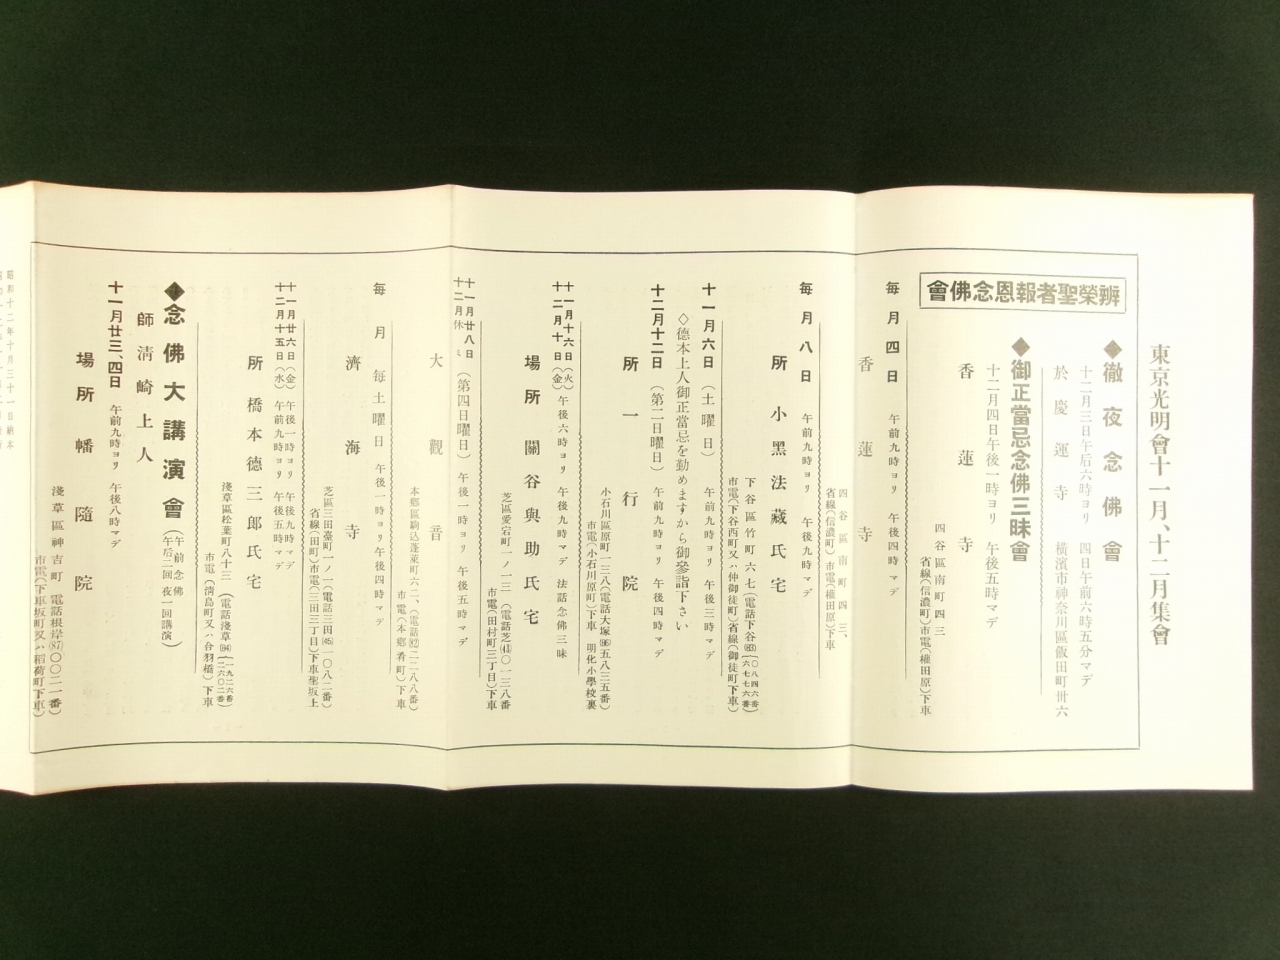 東京光明會十一月、十二月集會
辨榮聖者報恩念佛會
◆徹夜念佛會
十二月三日午后六時ヨリ 四日午前六時五分マデ
於慶運寺 横濱市神奈川區飯田町卅六
◆御正當忌念佛三昧會
十二月四日午後一時ヨリ 午後五時マデ
香蓮寺 四谷區南町四三
省線(信濃町)市電(權田原)下車
毎月四日 午前九時ヨリ 午後四時マデ
香蓮寺 四谷區南町四三、
省線(信濃町)市電(權田原)下車
毎月八日 午前九時ヨリ 午後九時マデ
所 小黑法藏氏宅
下谷區竹町六七(電話下谷(83)〇八四六番 六七七六番)
市電(下谷西町又ハ仲御徒町)省線(御徒町下車)
十一月六日(土曜日) 午前九時ヨリ 午後三時マデ
◇德本上人御正當忌を勤めますから御參詣下さい
十二月十二日(第二日曜日) 午前九時ヨリ 午後四時マデ
所 一行院
小石川區原町一三八(電話大塚(86)五八三五番)
市電(小石川原町)下車 明化小學校裏
十一月十六日(火) 午後六時ヨリ 午後九時マデ 法話念佛三昧
十二月十日(金)
場所 關谷與助氏宅
芝區愛宕町一ノ一三 (電話芝(43)〇一三八番)
市電(田村町三丁目)下車
十一月廿八日(第四日曜日) 午後一時ヨリ 午後五時マデ
十二月休ミ
大觀音
本郷區駒込蓬莱町六二、(電話(82)二二八八番)
市電(本郷肴町)下車
毎月毎土曜日 午後一時ヨリ午後四時マデ
濟海寺
芝區三田臺町一ノ一(電話三田(45)一〇八二番)
省線(田町)市電(三田三丁目)下車聖坂上
十一月廿六日(金)午後一時ヨリ 午後九時マデ
十二月十五日(水)午前九時ヨリ 午後五時マデ
所 橋本德三郎氏宅
淺草區松葉町八十三 (電話淺草(84)一九二六番 二六〇二番)
市電(淸島町又ハ合羽橋)下車
◆念佛大講演會(午前念佛 午后二回 夜一回講演)
師 淸崎上人
十一月廿三、四日 午前九時ヨリ 午後八時マデ
場所 幡隨院
淺草區神吉町 電話根岸(87)〇〇二一番
市電(下車坂町又ハ稻荷町下車)
昭和十二年十月三十一日納本